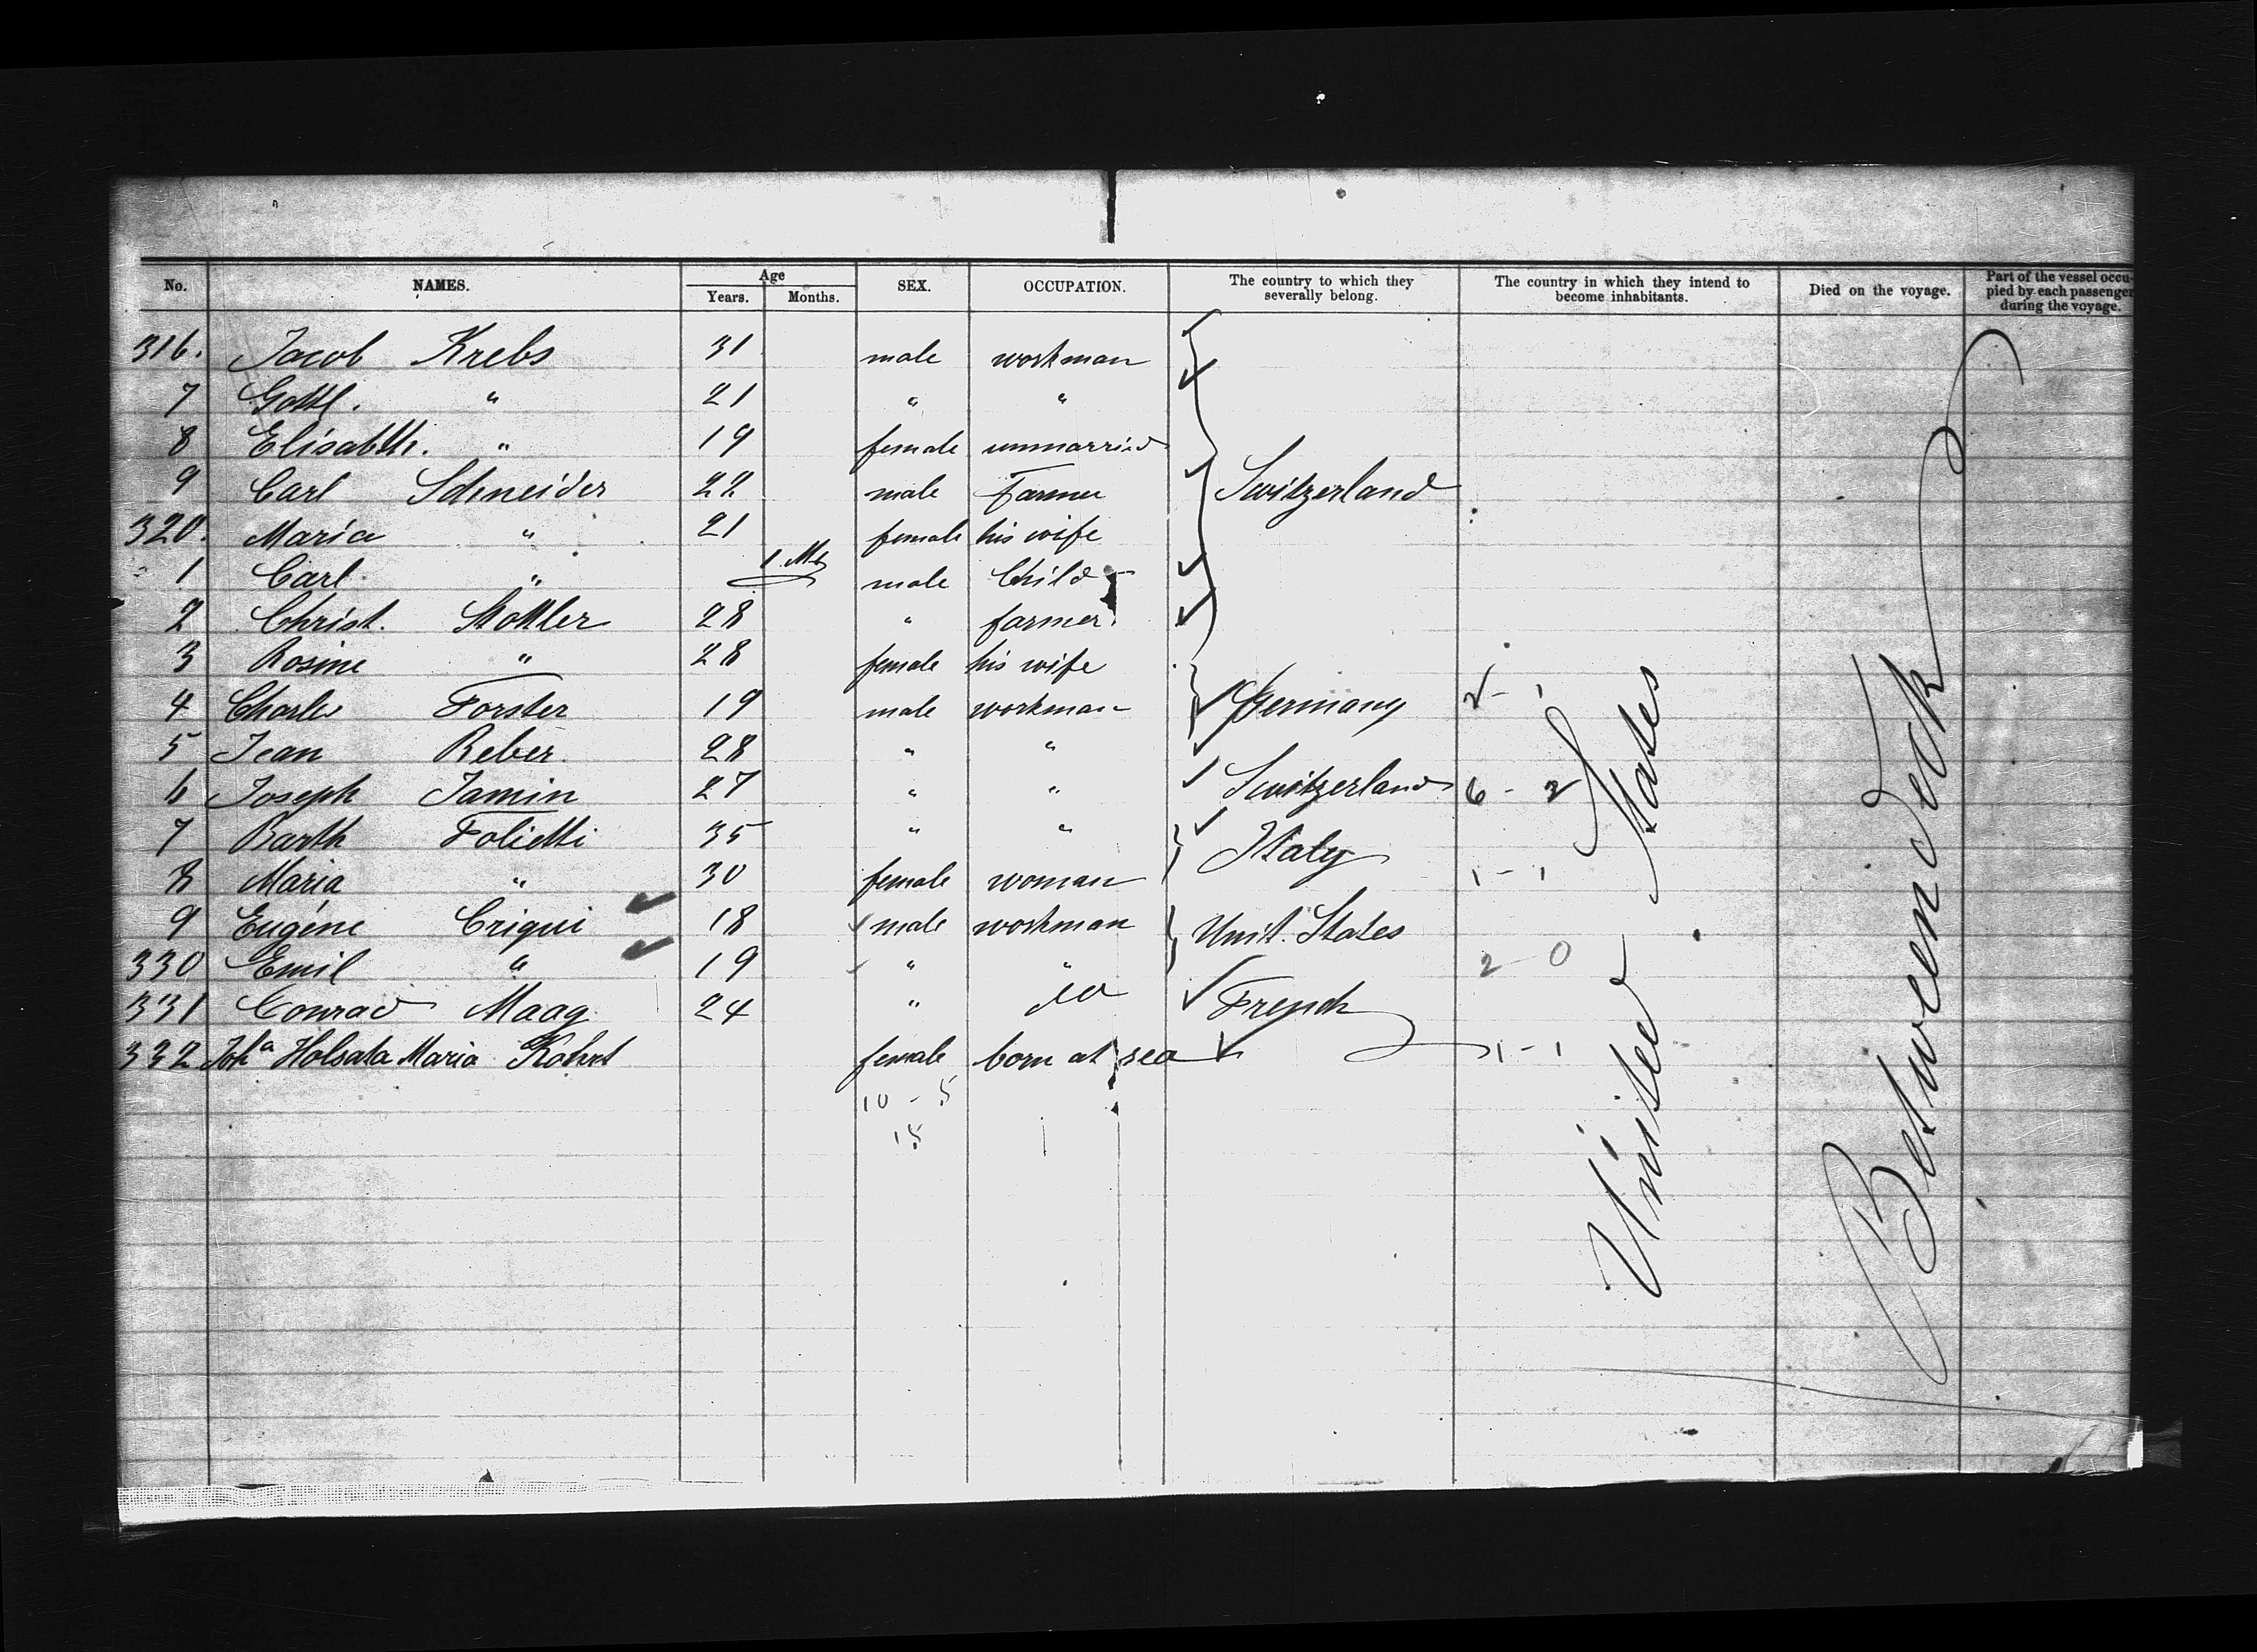 No. NAMES. Age Years. Months. SEX. OCCUPATION. The country to which they severally belong. The country in which they intend to become inhabitants. Died on the voyage. Part of the vessel occupied by each passenger during the voyage.
316. Jacob Krebs 31 male workman
7 Gottl. " 21 " "
8 Elisabth. " 19 female unmarried
9 Carl Schneider 22 male Farmer Switzerland
320. Maria " 21 female his wife
1 Carl " 1 Mth male Child
2 Christ. Stottler 28 " farmer
3 Rosine " 28 female his wife
4 Charles Forster 19 male workman Germany 2 - 1
5 Jean Reber 28 " "
6 Joseph Jamin 27 " " Switzerland 6 - 2
7 Barth Folietti 35 " " Italy
8 Maria " 30 female woman 1 - 1
9 Eugéne Criqui 18 male workman Unit. States
330 Emil " 19 " " 2 - 0
331 Conrad Maag 24 " do French
332 Joha Holsata Maria Kohrt female born at sea 1 - 1
10 - 5
15
United States
Between deck